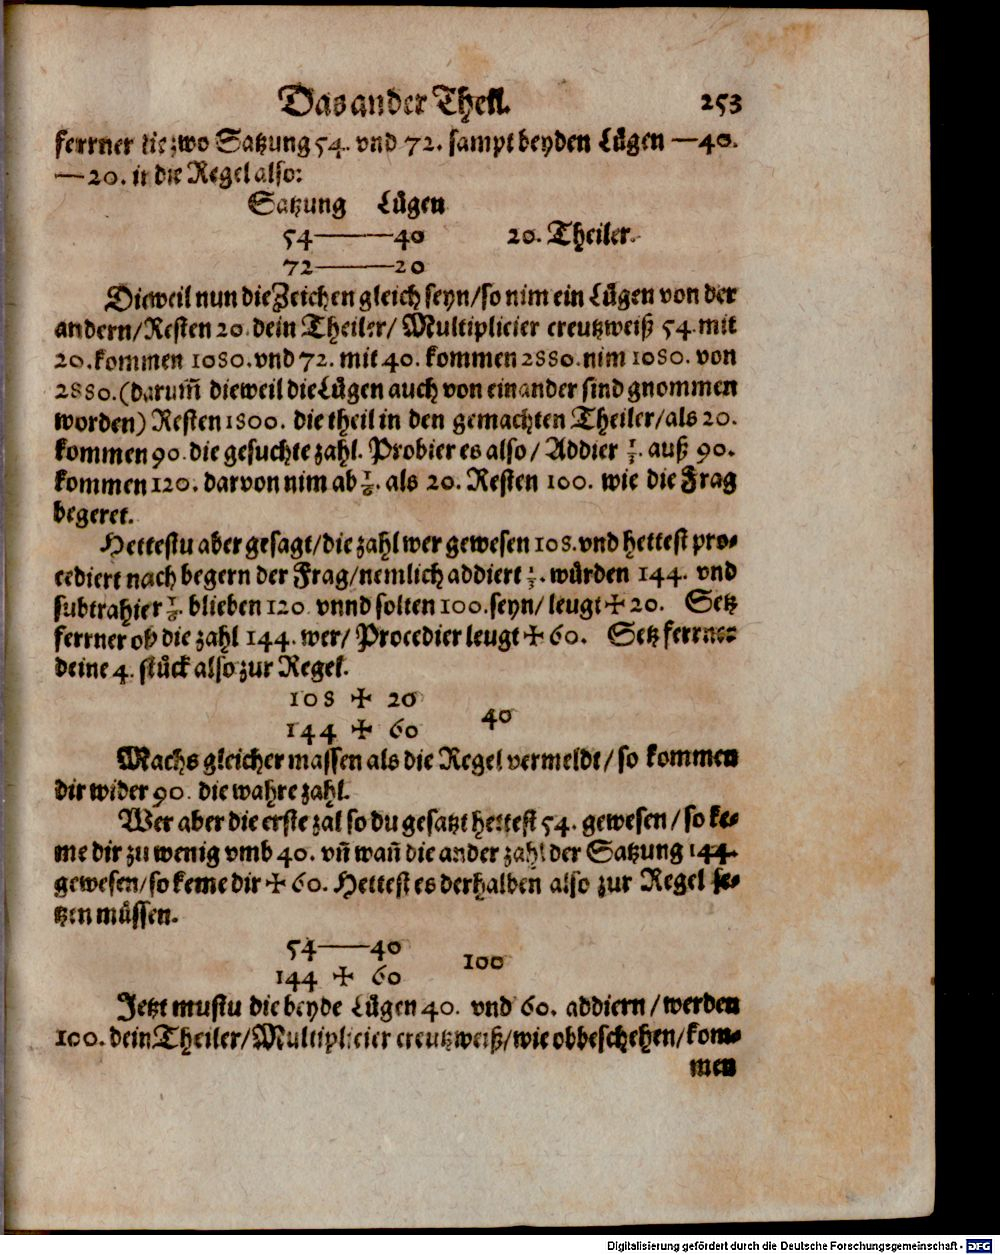 Das ander Theil. 253
ferrner die zwo Satzung 54. vnd 72. sampt beyden Lügen —40.
—20. in die Regel also:
Satzung Lügen
54——40 20. Theiler.
72——20
Dieweil nun die Zeichen gleich seyn/so nim ein Lügen von der
andern/Resten 20. dein Theiler/ Multiplicier creutzweiß 54. mit
20. kommen 1080. vnd 72. mit 40. kommen 2880. nim 1080. von
2880. (darum̃ dieweil die Lügen auch von einander sind gnommen
worden) Resten 1800. die theil in den gemachten Theiler/als 20.
kommen 90. die gesuchte zahl. Probier es also/ Addier ⅓. auß 90.
kommen 120. darvon nim ab ⅙. als 20. Resten 100. wie die Frag
begeret.
Hettestu aber gesagt/die zahl wer gewesen 108. vnd hettest pro-
cediert nach begern der Frag/nemlich addiert ⅓. würden 144. vnd
subtrahier ⅙. blieben 120 vnnd solten 100. seyn/ leugt ✠ 20. Setz
ferrner ob die zahl 144. wer/ Procedier leugt ✠ 60. Setz ferrner
deine 4. stück also zur Regel.
108 ✠ 20
144 ✠ 60 40
Machs gleicher massen als die Regel vermeldt/ so kommen
dir wider 90. die wahre zahl.
Wer aber die erste zal so du gesatzt hettest 54. gewesen/ so ke-
me dir zu wenig vmb 40. vñ wañ die ander zahl der Satzung 144.
gewesen/so keme dir ✠ 60. Hettest es derhalben also zur Regel se-
tzen müssen.
54——40
144 ✠ 60 100
Jetzt mustu die beyde Lügen 40. vnd 60. addiern/ werden
100. dein Theiler/Multiplicier creutzweiß/wie obbeschehen/kom-
men
Digitalisierung gefördert durch die Deutsche Forschungsgemeinschaft - DFG